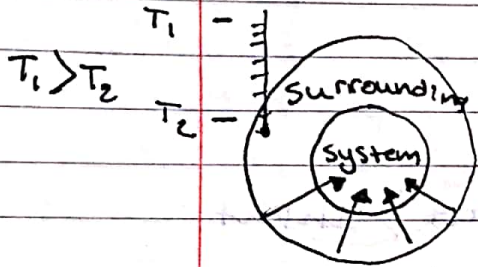 T₁ -
T₁ > T₂
Surrounding
T₂ -
System